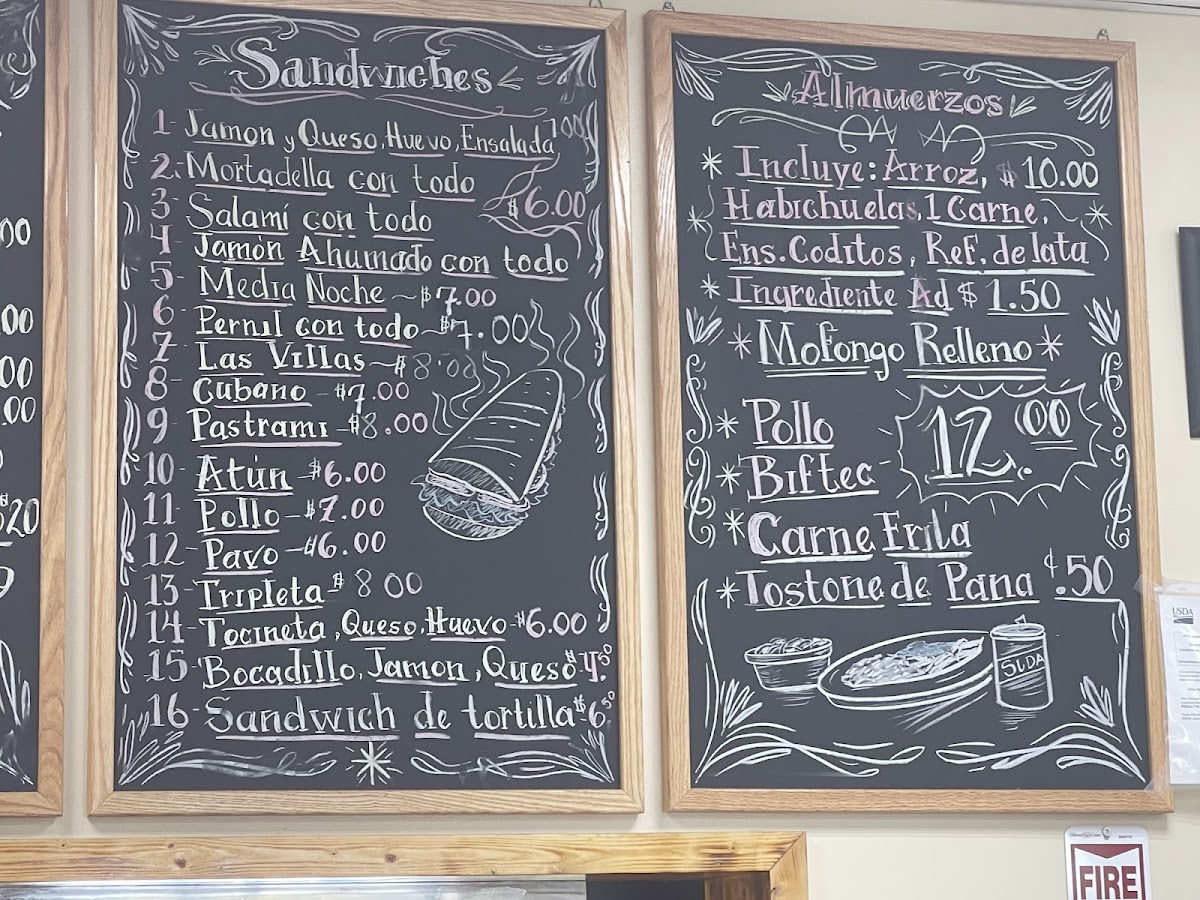 00
.00
00
.00
$20
9
Sandwiches
1- Jamon y Queso, Huevo, Ensalada 7.00
2- Mortadella con todo
$6.00
3- Salamí con todo
4- Jamón Ahumado con todo
5- Media Noche ~ $7.00
6- Pernil con todo ~ $7.00
7- Las Villas ~ $8.00
8- Cubano - $7.00
9- Pastrami - $8.00
10- Atún - $6.00
11- Pollo - $7.00
12- Pavo - $6.00
13- Tripleta - $8 00
14- Tocineta, Queso, Huevo - $6.00
15- Bocadillo, Jamon, Queso $4.50
16- Sandwich de tortilla - $6.50
Almuerzos
* Incluye: Arroz, $10.00
Habichuelas, 1 Carne, *
Ens. Coditos, Ref. de lata
* Ingrediente Ad $ 1.50
* Mofongo Relleno *
* Pollo
12.00
* Biftec
* Carne Frita
* Tostone de Pana $.50
SODA
USDA
FIRE